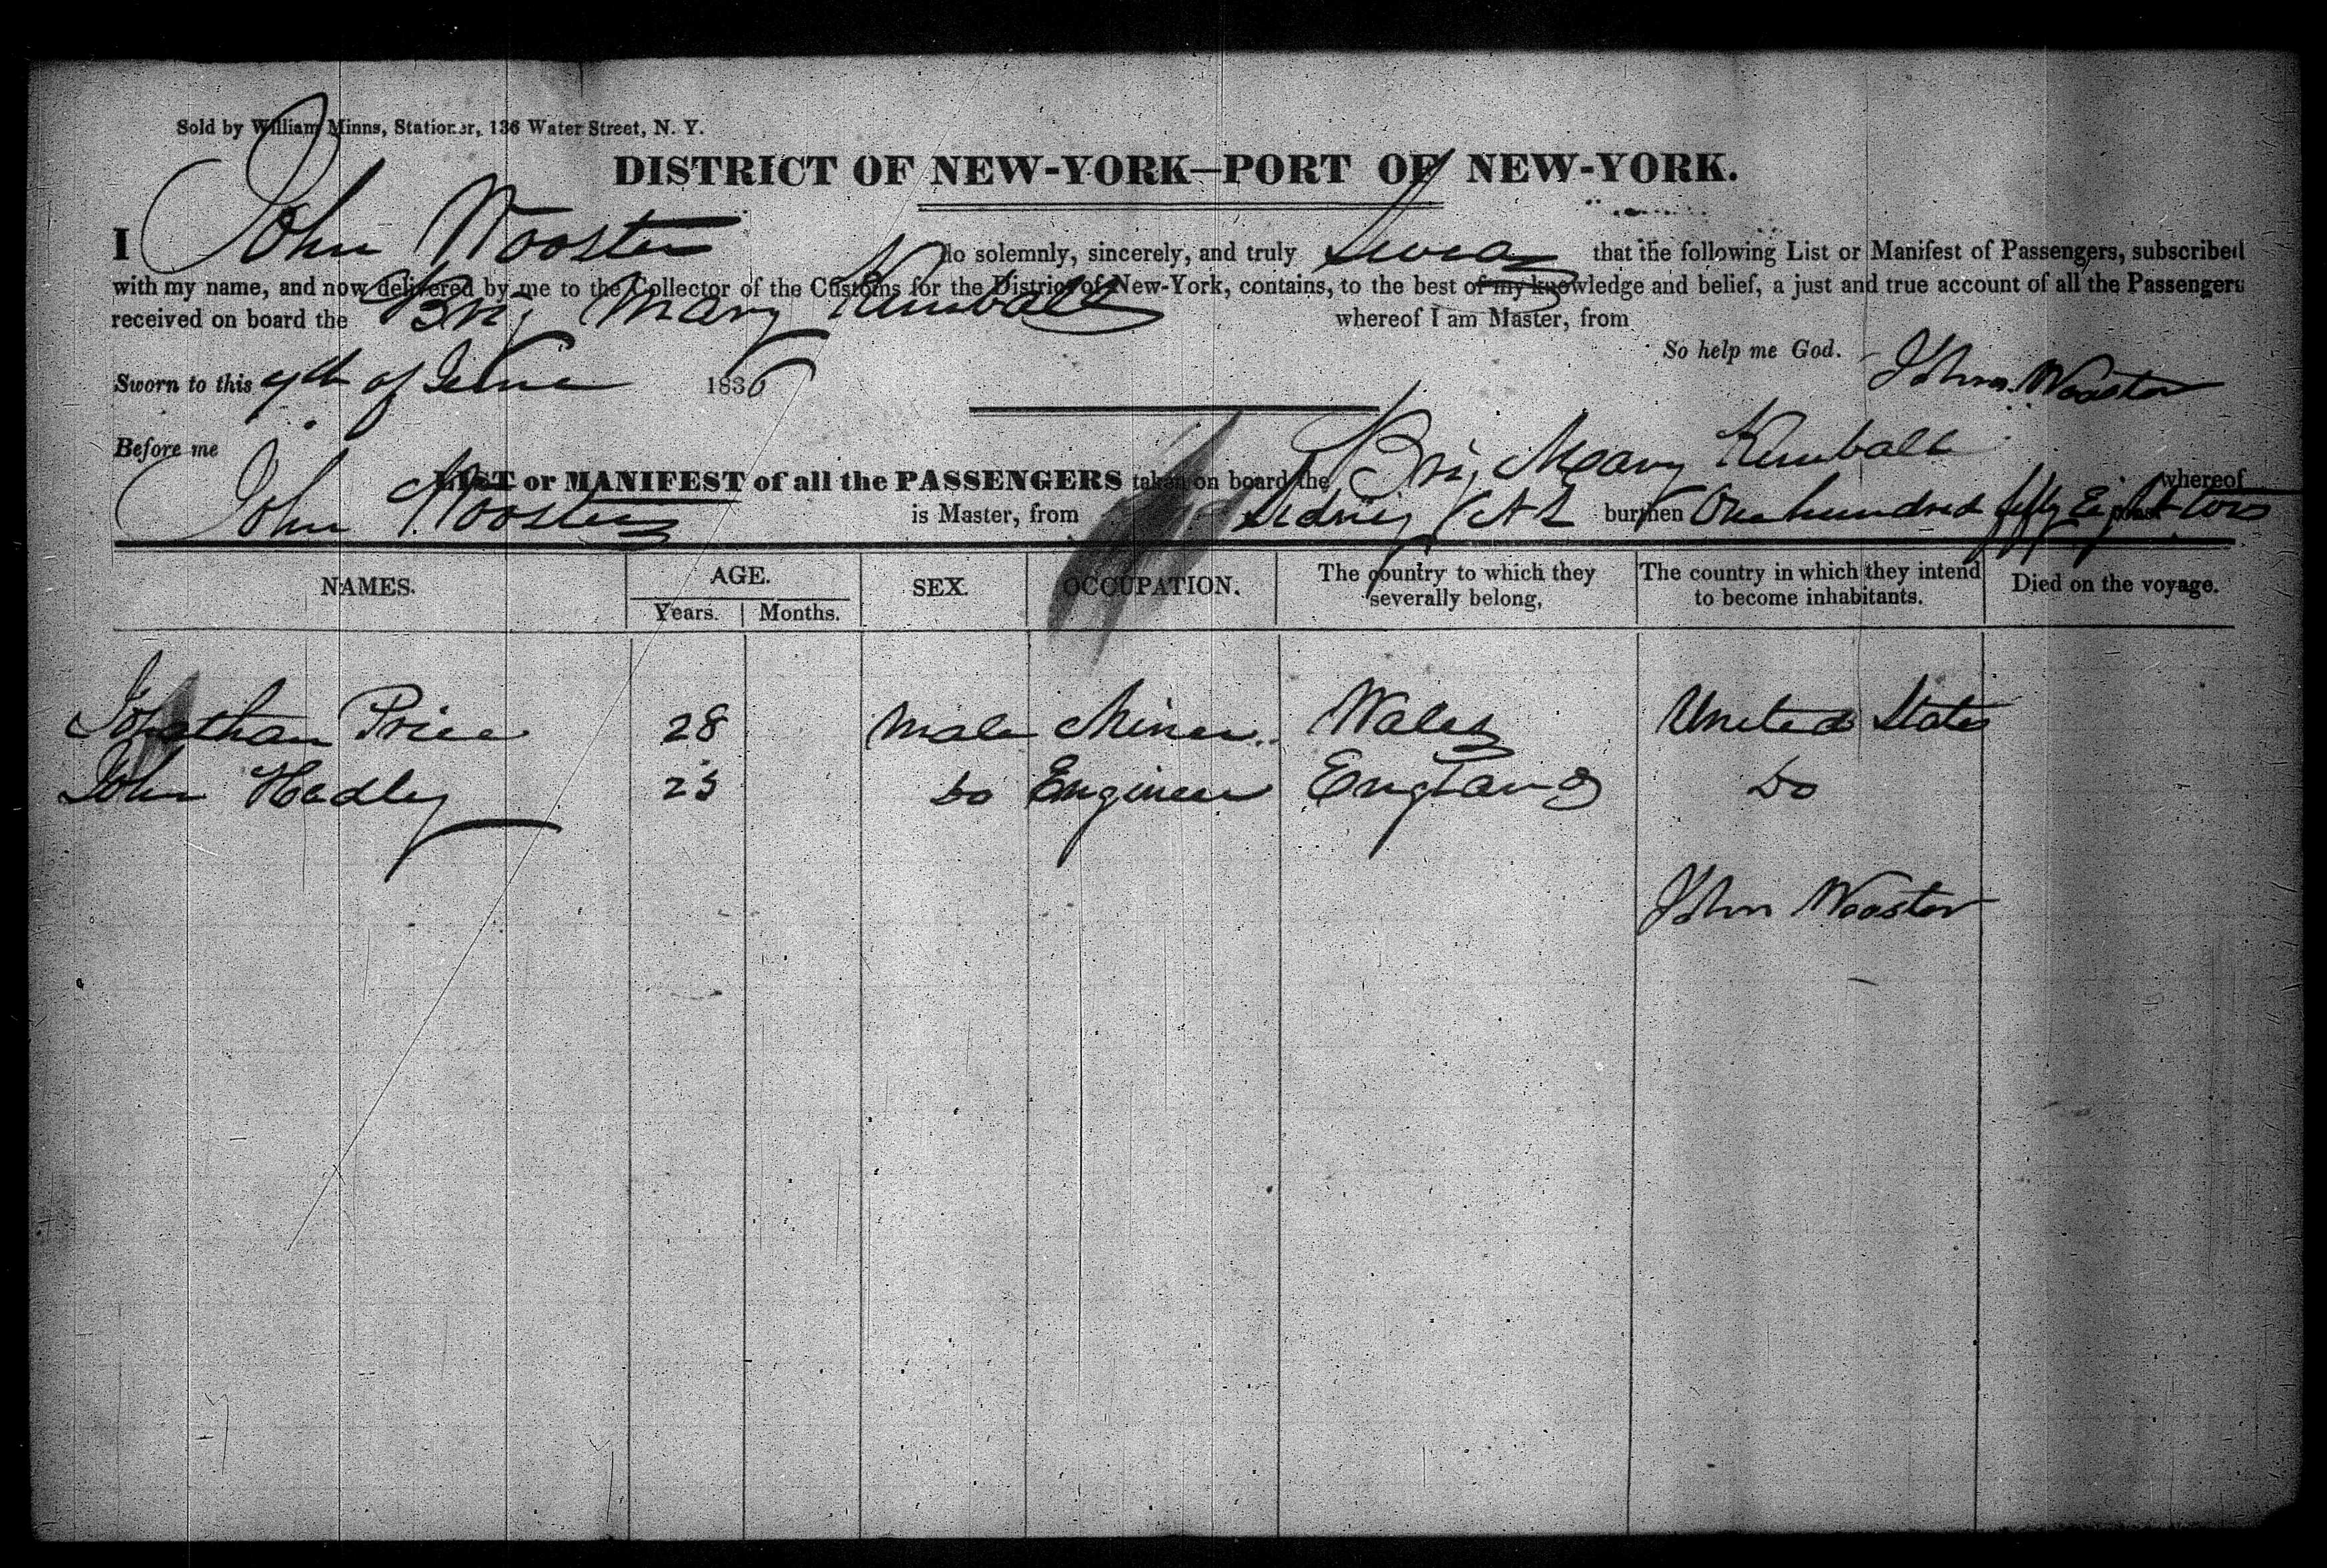 Sold by William Minns, Stationer, 136 Water Street, N. Y.
DISTRICT OF NEW-YORK—PORT OF NEW-YORK.
I John Wooster do solemnly, sincerely, and truly Swear that the following List or Manifest of Passengers, subscribed
with my name, and now delivered by me to the Collector of the Customs for the District of New-York, contains, to the best of my knowledge and belief, a just and true account of all the Passengers
received on board the Brig Mary Kimball whereof I am Master, from
So help me God. John Wooster
Sworn to this of June 1836
Before me
LIST or MANIFEST of all the PASSENGERS taken on board the Brig Mary Kimball whereof
John Wooster is Master, from Sidney burthen One hundred fifty Eight tons
NAMES. AGE. SEX. OCCUPATION. The country to which they severally belong, The country in which they intend to become inhabitants. Died on the voyage.
Years. Months.
Jonathan Price 28 Male Miner Wales United States
John Hadley 23 Do Engineer England Do
John Wooster